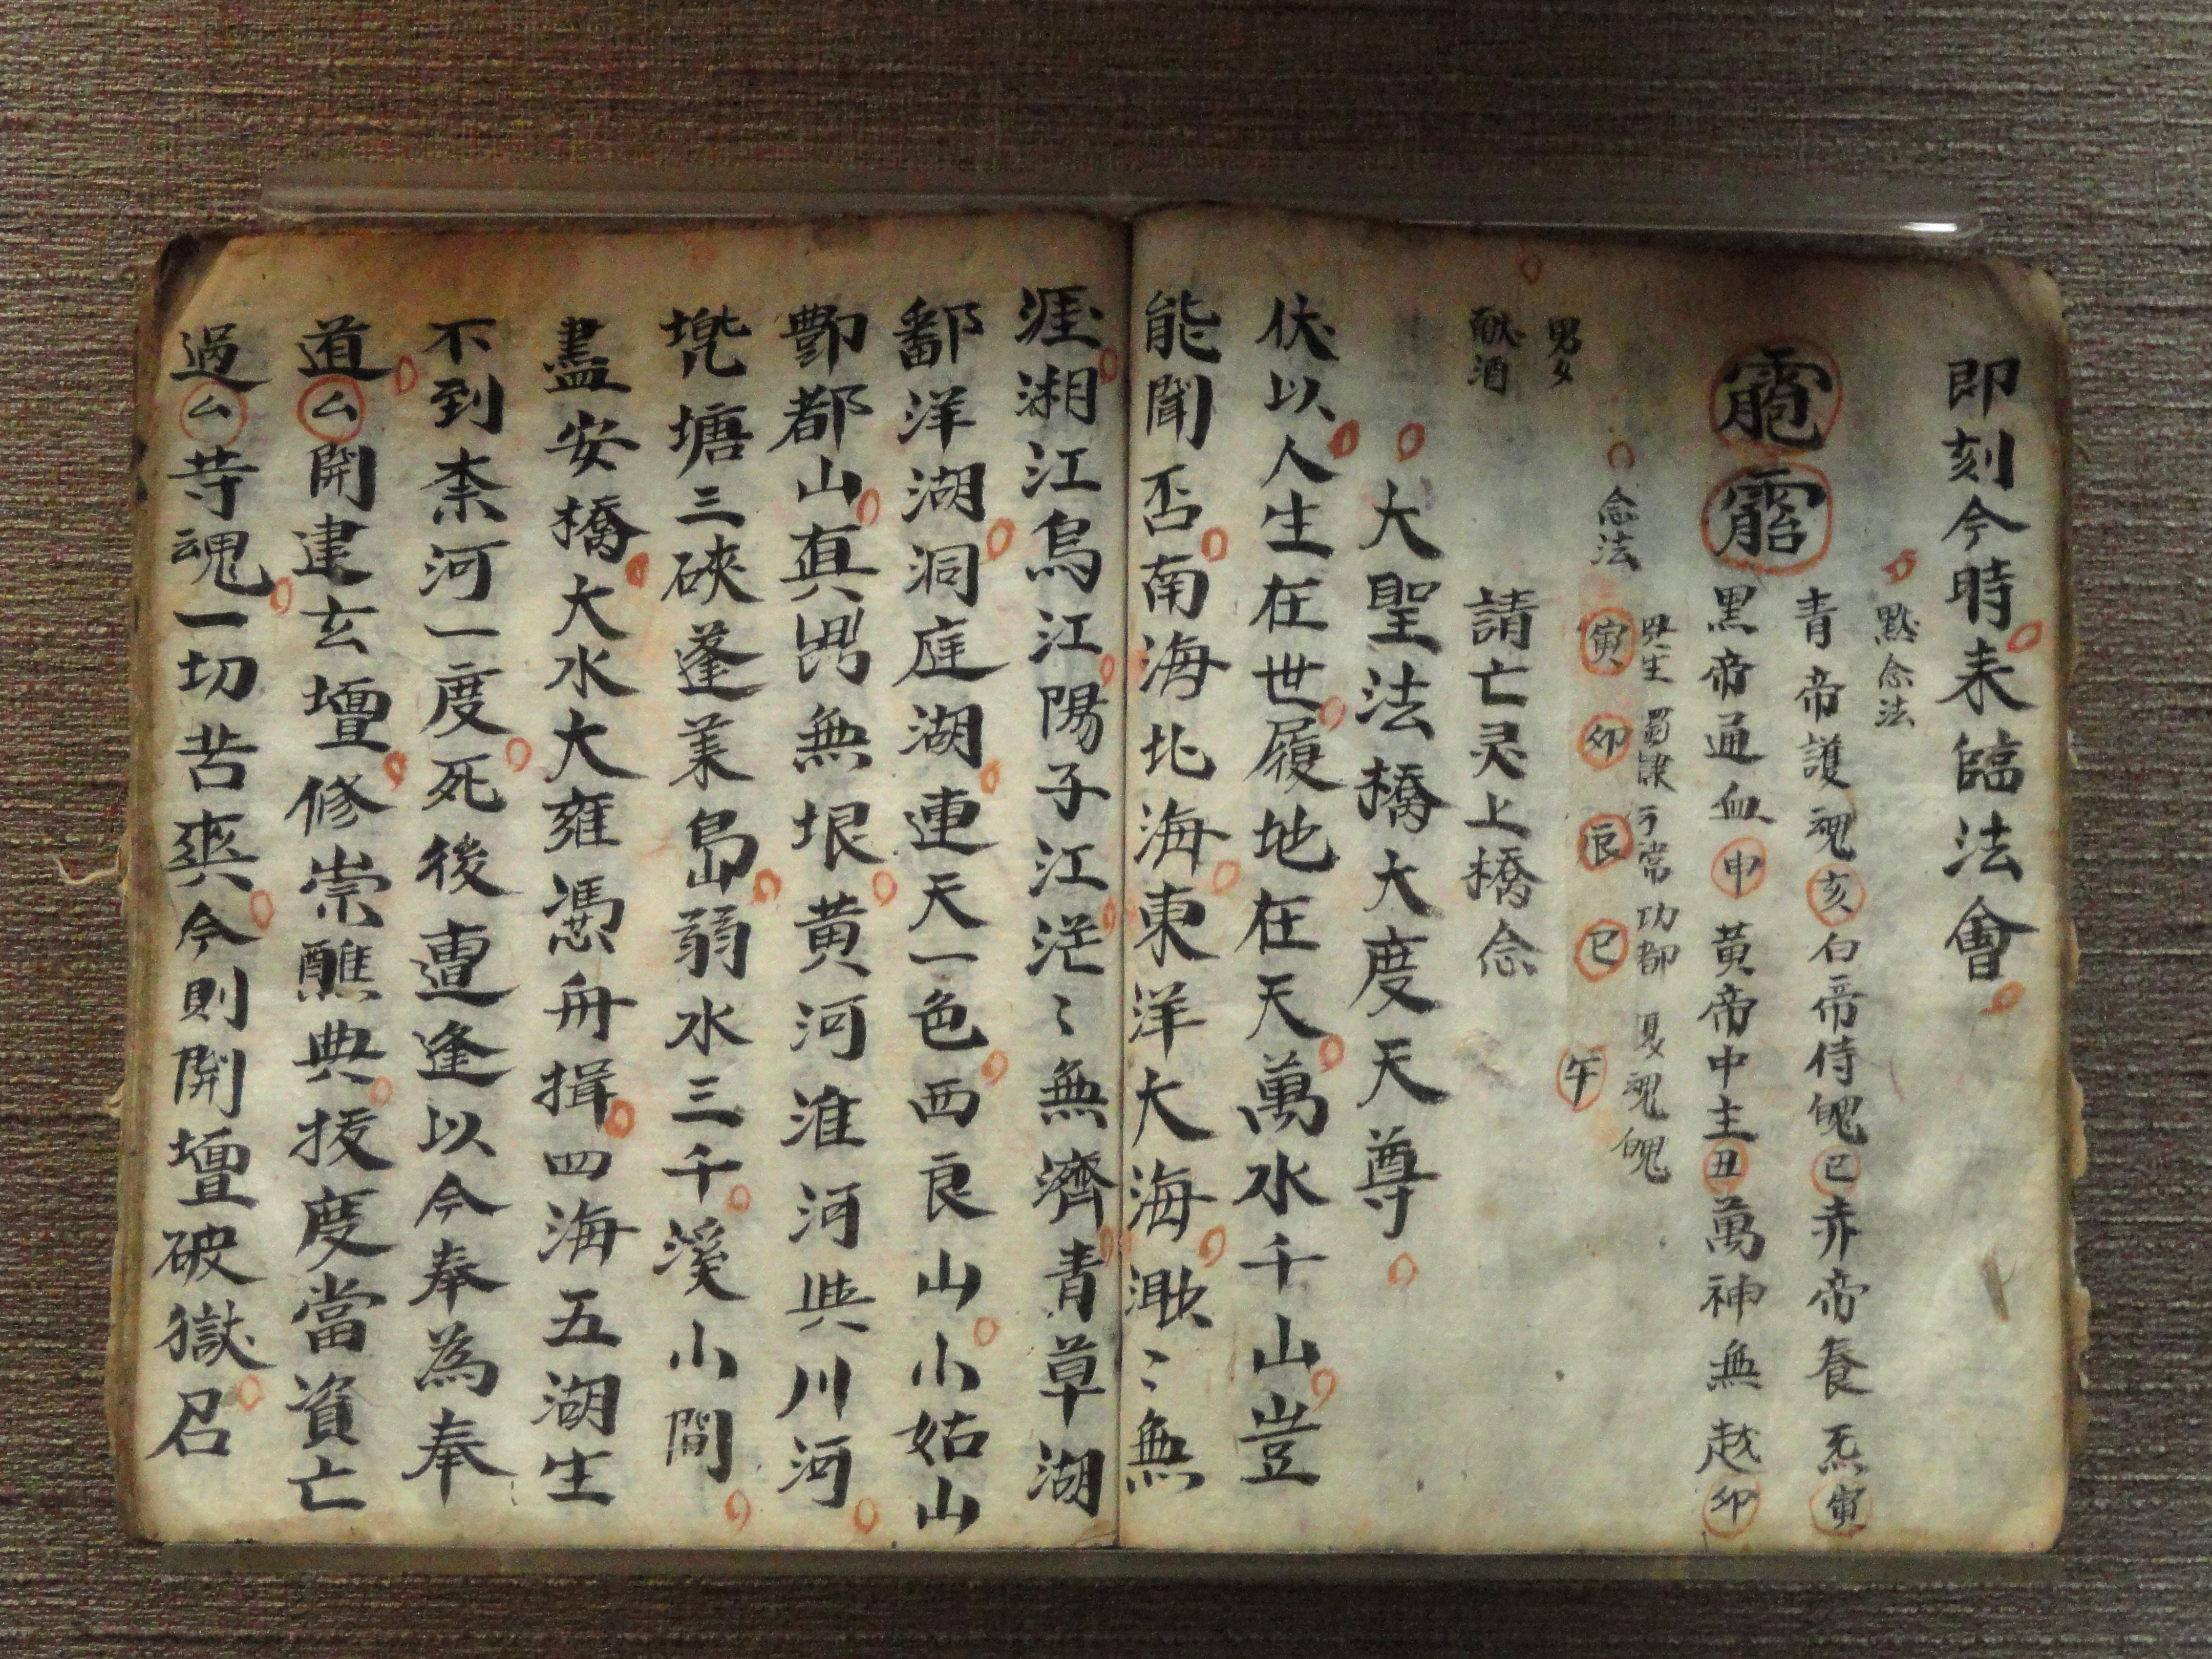 即刻今時耒臨法會
黙念法
青帝護魂亥白帝侍魄巳赤帝養炁寅
黑帝通血申黃帝中主丑萬神無越卯
念法
寅卯辰巳午
男女
献酒
請亡灵上橋念
大聖法橋大度天尊
伏以人生在世履地在天萬水千山豈
能聞否南海北海東洋大海渺〻無
涯湘江烏江陽子江江茫〻無濟青草湖
鄱洋湖洞庭湖連天一色西良山小姑山
酆都山真無垠黄河淮河與川河
塘三硤蓬莱島弱水三千溪小間
盡安橋大水大雍憑舟揖四海五湖生
不到柰河一度死後遭逢以今奉為奉
道厶開建玄壇修崇醮典拔度當資亡
過厶䓁魂一切苦爽今則開壇破獄召